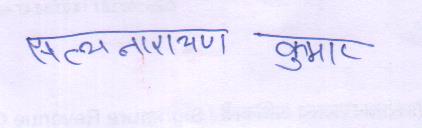 सत्यनारायण कुमार